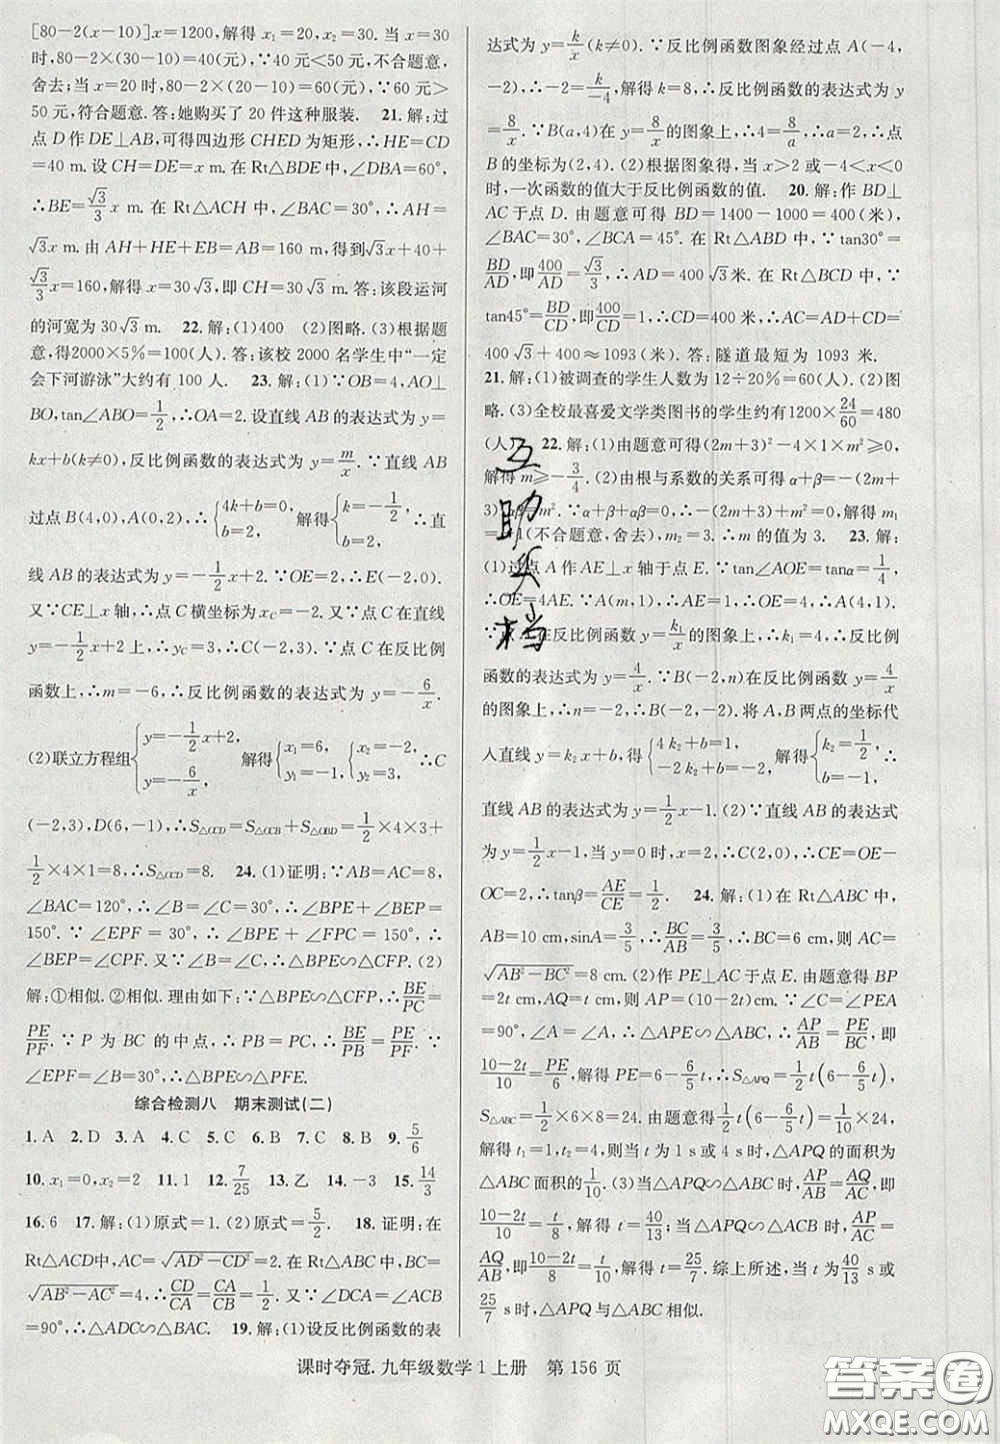 [80－2(x－10)]x＝1200,解得 x₁＝20,x₂＝30. 当 x＝30
时,80－2×(30－10)＝40(元),∵40 元＜50 元,不合题意,
舍去;当 x＝20 时,80－2×(20－10)＝60(元),∵60 元＞
50 元,符合题意. 答:她购买了 20 件这种服装. 21. 解:过
点 D 作 DE⊥AB,可得四边形 CHED 为矩形,∴HE＝CD
＝40 m. 设 CH＝DE＝x m. 在 Rt△BDE 中,∠DBA＝60°,
∴BE＝√3/3 x m. 在 Rt△ACH 中,∠BAC＝30°,∴AH＝
√3x m. 由 AH＋HE＋EB＝AB＝160 m, 得到√3x＋40＋
√3/3 x＝160,解得 x＝30√3,即 CH＝30√3 m. 答:该段运河
的河宽为 30√3 m. 22. 解:(1)400 (2)图略. (3)根据题
意,得2000×5%＝100(人). 答:该校 2000 名学生中“一定
会下河游泳”大约有 100 人. 23. 解:(1)∵OB＝4,AO⊥
BO,tan∠ABO＝1/2,∴OA＝2. 设直线 AB 的表达式为 y＝
kx＋b(k≠0),反比例函数的表达式为 y＝m/x. ∵直线 AB
过点 B(4,0),A(0,2),∴{4k＋b＝0, b＝2. 解得{k＝－1/2, b＝2. ∴直
线 AB 的表达式为 y＝－1/2x＋2. ∵OE＝2,∴E(－2,0).
又∵CE⊥x 轴,∴点 C 横坐标为 x_C＝－2. 又∵点 C 在直线
y＝－1/2x＋2 上,∴y_C＝3,∴C(－2,3). ∵点 C 在反比例
函数上,∴m＝－6,∴反比例函数的表达式为 y＝－6/x.
(2)联立方程组{y＝－1/2x＋2, y＝－6/x. 解得{x₁＝6, y₁＝－1, {x₂＝－2, y₂＝3, ∴C
(－2,3),D(6,－1),∴S△OCD＝S△OCB＋S△OBD＝1/2×4×3＋
1/2×4×1＝8,∴S△OCD＝8. 24. (1)证明:∵AB＝AC＝8,
∠BAC＝120°,∴∠B＝∠C＝30°,∴∠BPE＋∠BEP＝
150°. ∵∠EPF＝30°,∴∠BPE＋∠FPC＝150°,∴
∠BEP＝∠CPF. 又∵∠B＝∠C,∴△BPE∽△CFP. (2)
解:①相似. ②相似. 理由如下:∵△BPE∽△CFP,∴BE/PC＝
PE/PF. ∵P 为 BC 的中点,∴PB＝PC,∴BE/PB＝PE/PF. ∵
∠EPF＝∠B＝30°,∴△BPE∽△PFE.
综合检测八 期末测试(二)
1. A 2. D 3. A 4. C 5. C 6. B 7. C 8. B 9. 5/6
10. x₁＝0,x₂＝2 11. 1 12. 7/25 13. 乙 14. －3 15. 14/3
16. 6 17. 解:(1)原式＝1. (2)原式＝5/2. 18. 证明:在
Rt△ACD中,AC＝√(AD²－CD²)＝2. 在 Rt△ABC 中,BC＝
√(AB²－AC²)＝4,∴CD/CA＝CA/CB＝1/2. 又∵∠DCA＝∠ACB
＝90°,∴△ADC∽△BAC. 19. 解:(1)设反比例函数的表
达式为 y＝k/x(k≠0). ∵反比例函数图象经过点 A(－4,
－2),∴－2＝k/－4,解得 k＝8,∴反比例函数的表达式为
y＝8/x. ∵B(a,4)在 y＝8/x的图象上,∴4＝8/a,∴a＝2,∴点
B 的坐标为(2,4). (2)根据图象得,当 x＞2 或－4＜x＜0
时,一次函数的值大于反比例函数的值. 20. 解:作 BD⊥
AC于点 D. 由题意可得 BD＝1400－1000＝400(米),
∠BAC＝30°,∠BCA＝45°. 在 Rt△ABD 中,∵tan30°＝
BD/AD,即400/AD＝√3/3,∴AD＝400√3米. 在 Rt△BCD 中,∵
tan45°＝BD/CD,即400/CD＝1,∴CD＝400(米),∴AC＝AD＋CD＝
400√3＋400≈1093(米). 答:隧道最短为 1093 米.
21. 解:(1)被调查的学生人数为12÷20%＝60(人). (2)图
略. (3)全校最喜爱文学类图书的学生约有1200×24/60＝480
(人). 22. 解:(1)由题意可得(2m＋3)²－4×1×m²≥0,
解得 m≥－3/4. (2)由根与系数的关系可得 α＋β＝－(2m＋
3),αβ＝m². ∵α＋β＋αβ＝0,∴－(2m＋3)＋m²＝0,解得 m₁
＝－1(不合题意,舍去),m₂＝3. ∴m 的值为 3. 23. 解:
(1)过点 A 作 AE⊥x 轴于点 E. ∵tan∠AOE＝tanα＝1/4,
∴OE＝4AE. ∵A(m,1),∴AE＝1,OE＝4,∴A(4,1).
∵点 A 在反比例函数 y＝k₁/x的图象上,∴k₁＝4,∴反比例
函数的表达式为 y＝4/x. ∵B(－2,n)在反比例函数 y＝4/x
的图象上,∴n＝－2,∴B(－2,－2). 将 A,B 两点的坐标代
入直线 y＝k₂x＋b,得{4k₂＋b＝1, －2k₂＋b＝－2. 解得{k₂＝1/2, b＝－1. ∴
直线 AB 的表达式为 y＝1/2x－1. (2)∵直线 AB 的表达式
为 y＝1/2x－1,当 y＝0 时,x＝2,∴C(2,0),∴CE＝OE－
OC＝2,∴tanβ＝AE/CE＝1/2. 24. 解:(1)在 Rt△ABC 中,
AB＝10 cm,sinA＝3/5,∴BC/AB＝3/5,∴BC＝6 cm,则 AC＝
√(AB²－BC²)＝8 cm. (2)作 PE⊥AC 于点 E. 由题意得 BP
＝2t cm,AQ＝t cm,则 AP＝(10－2t)cm. ∵∠C＝∠PEA
＝90°,∠A＝∠A,∴△APE∽△ABC,∴AP/AB＝PE/BC,即
10－2t/10＝PE/6,∴PE＝6－6/5t,∴S△APQ＝1/2t(6－6/5t).
∵S△ABC＝1/2×6×8＝24,由题意得1/2t(6－6/5t)＝1/10×24,
解得 t₁＝1,t₂＝4,则当 t 为 1 s 或 4 s 时,△APQ 的面积为
△ABC 面积的1/10. (3)当△APQ∽△ABC 时,AP/AB＝AQ/AC,即
10－2t/10＝t/8,解得 t＝40/13;当△APQ∽△ACB 时,AP/AC＝
AQ/AB,即10－2t/8＝t/10,解得 t＝25/7. 综上所述,当 t 为40/13 s 或
25/7 s 时,△APQ 与△ABC 相似.
互助文档
课时夺冠. 九年级数学 1 上册 第 156 页
答案圈
MXQE.COM